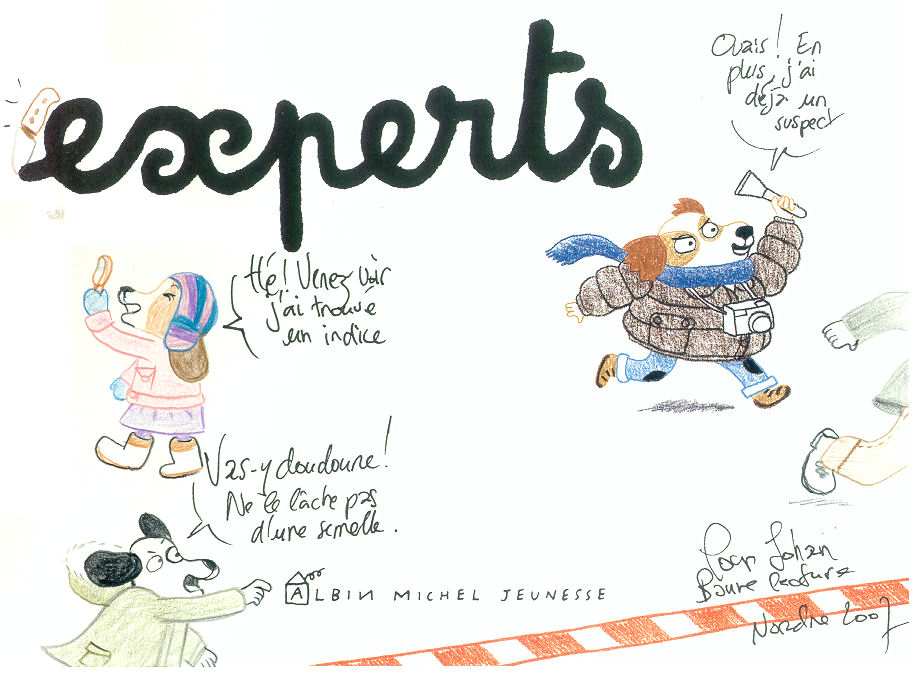 experts
Ouais! En
plus, j'ai
déjà un
suspect
Hé! Venez voir
j'ai trouvé
un indice
Vas-y doudoune!
Ne le lâche pas
d'une semelle.
ALBIN MICHEL JEUNESSE
Pour Johan
Bonne lecture
2007